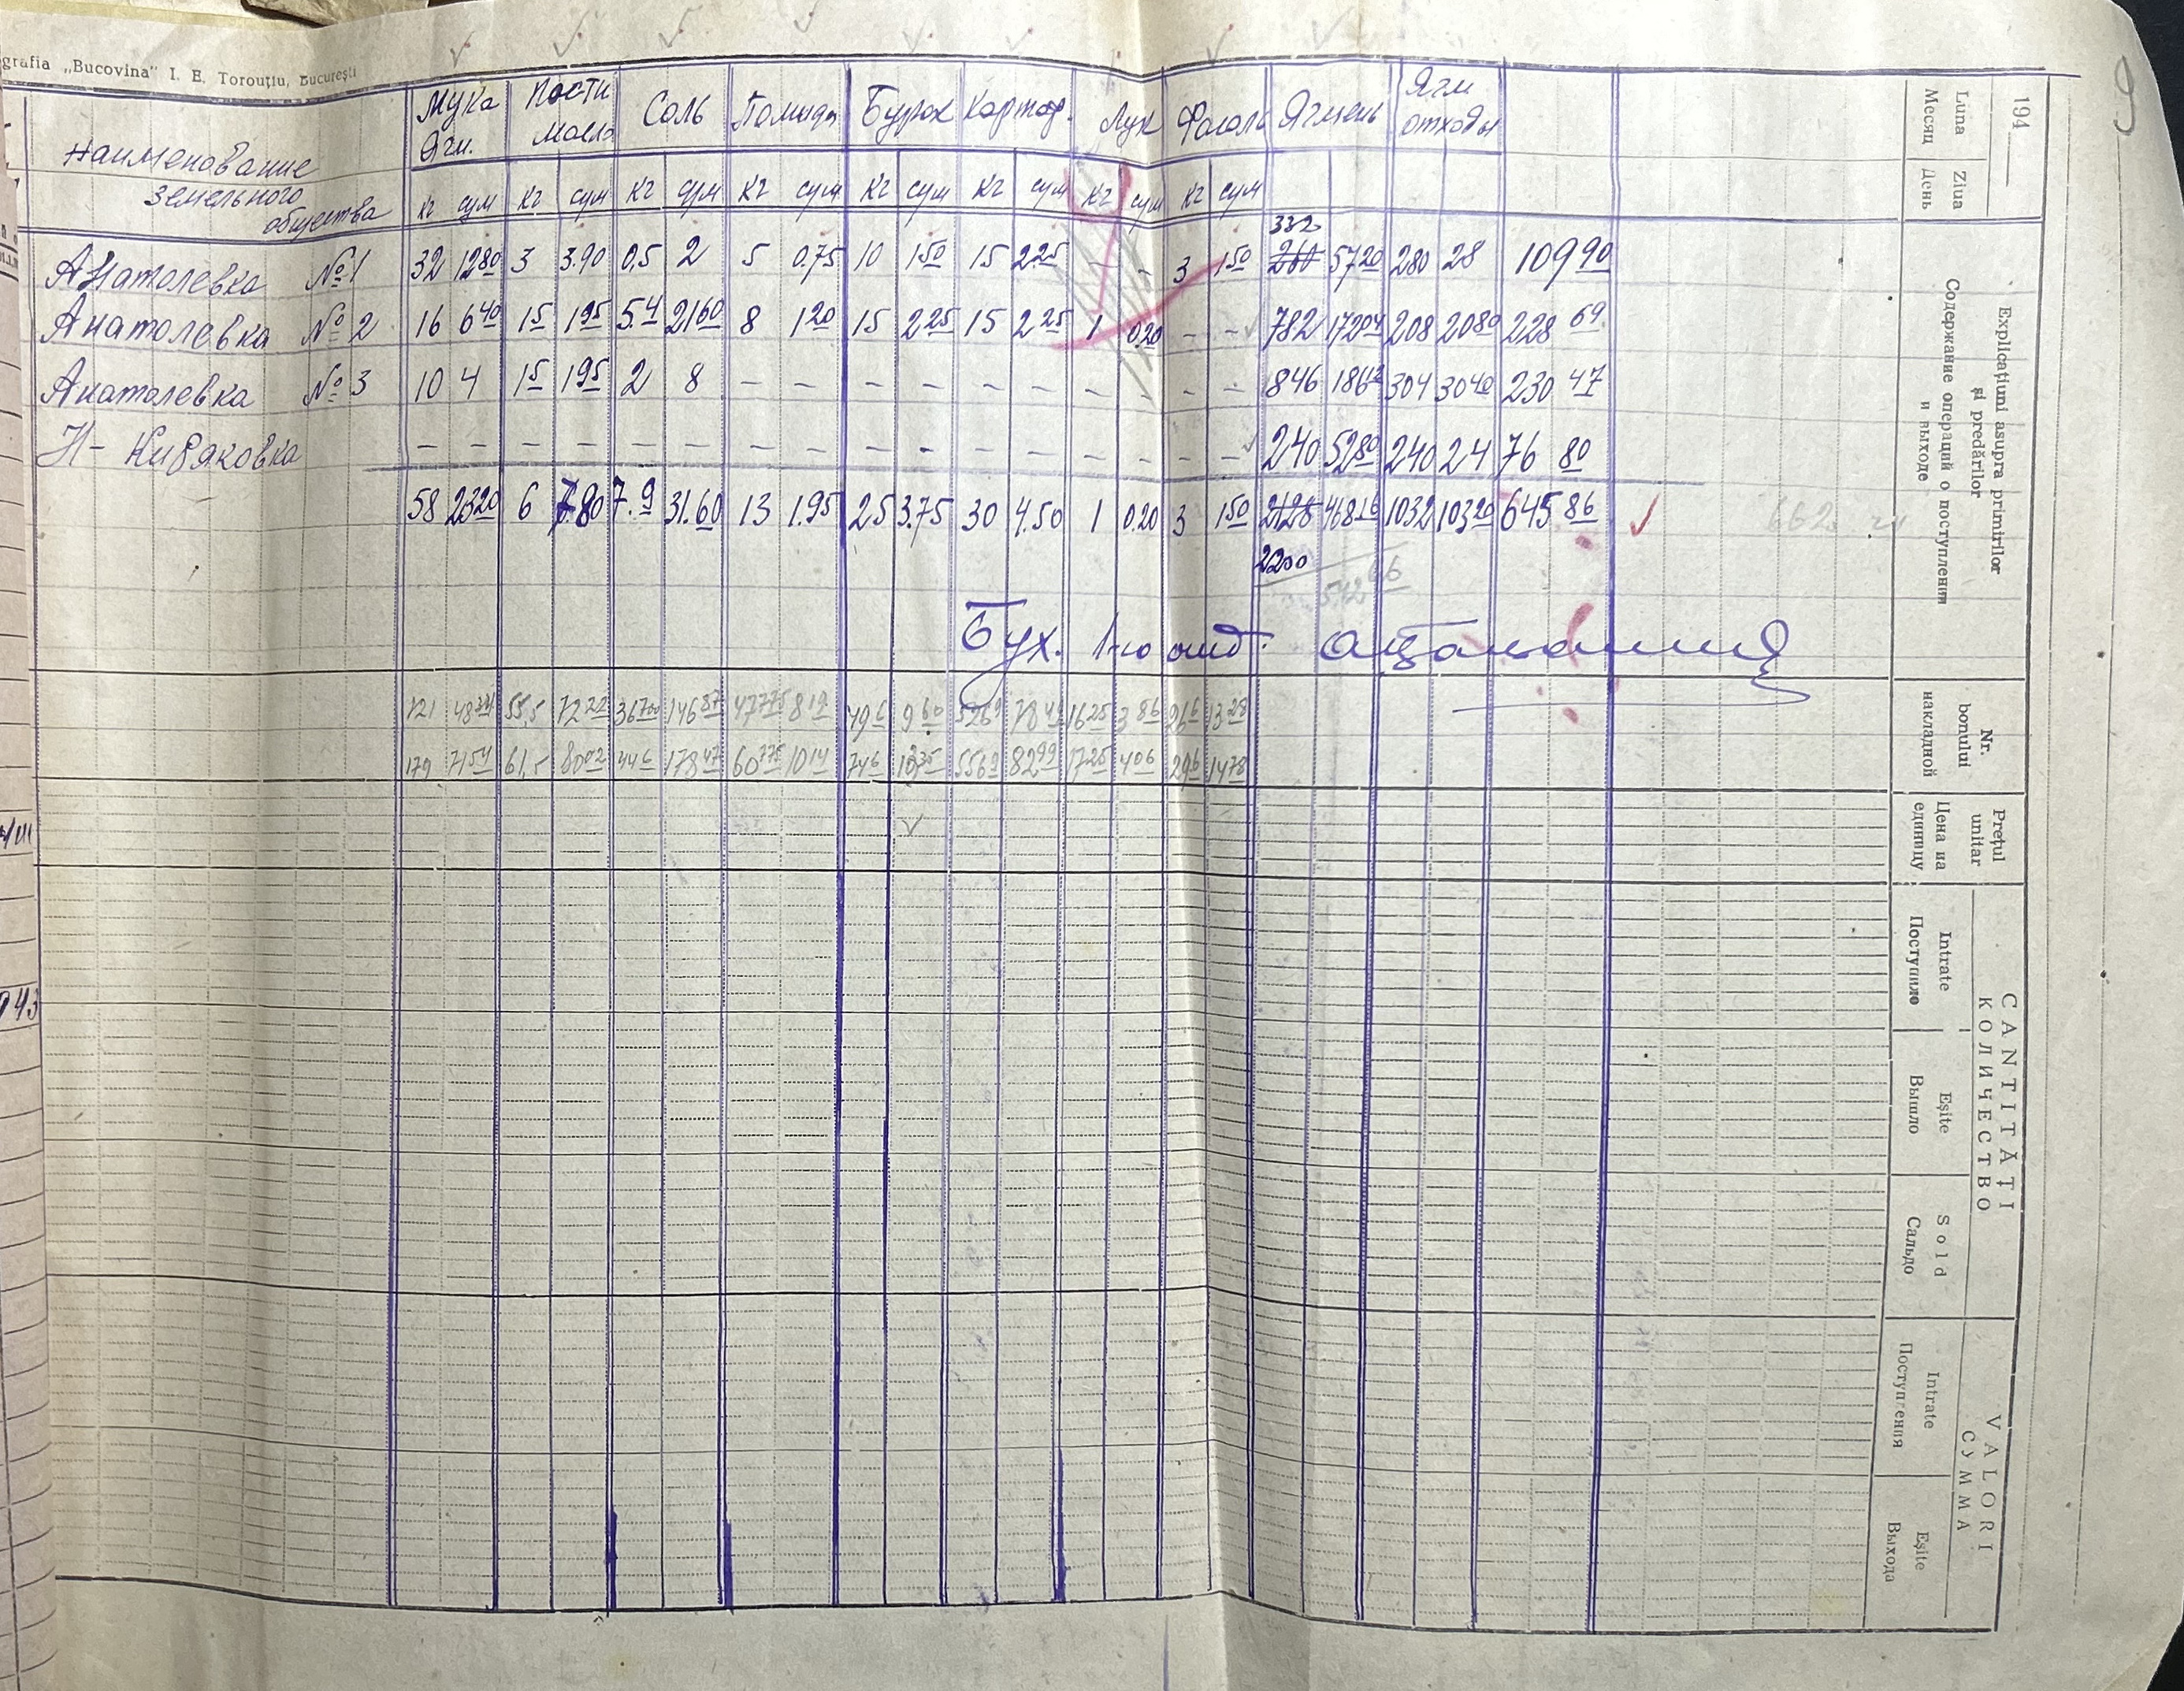 grafia „Bucovina" I. E. Torouțiu, București
Наименование земельного общества | Мука Ячм. | Пости масло | Соль | Помидо | Бурок | Картоф. | Лук | Фасоль | Ячмень | Ячм отходы
кг сум | кг сум | кг сум | кг сум | кг сум | кг сум | кг сум | кг сум
332
Анатолевка № 1 32 12 80 3 3.90 0,5 2 5 0,75 10 1 50 15 2 25 – – 3 1 50 260 57 20 280 28 109 90
Анатолевка № 2 16 6 40 1 5 1 95 5.4 21 60 8 1 20 15 2 25 15 2 25 1 0.20 – – 782 172 04 208 20 80 228 69
Анатолевка № 3 10 4 1 5 1 95 2 8 – – – – – – – – – – 846 186 12 304 30 40 230 47
Н- Кидяковка – – – – – – – – – – – – – – – – 240 52 80 240 24 76 80
58 23 20 6 7.80 7.9 31.60 13 1.95 25 3.75 30 4.50 1 0.20 3 1 50 2128 468 16 1032 103 20 645 86
2200
Бух. 1-го
121 48 34 55,5 72 22 36 700 146 87 47 775 8 19 49 6 9 60 526 9 78 49 16 25 3 86 26 6 13 28
179 71 54 61,5 80 02 44 6 178 47 60 775 10 14 74 6 13 35 556 9 82 99 17 25 4 06 29 6 14 78
194
Luna
Месяц
Ziua
День
Explicațiuni asupra primirilor
și predărilor
Содержание операций о поступлении
и выходе
Nr.
bonului
накладной
Prețul
unitar
Цена на
единицу
CANTITĂȚI
КОЛИЧЕСТВО
Intrate
Поступило
Eșite
Вышло
Sold
Сальдо
VALORI
СУММА
Intrate
Поступления
Eșite
Выхода
9
943